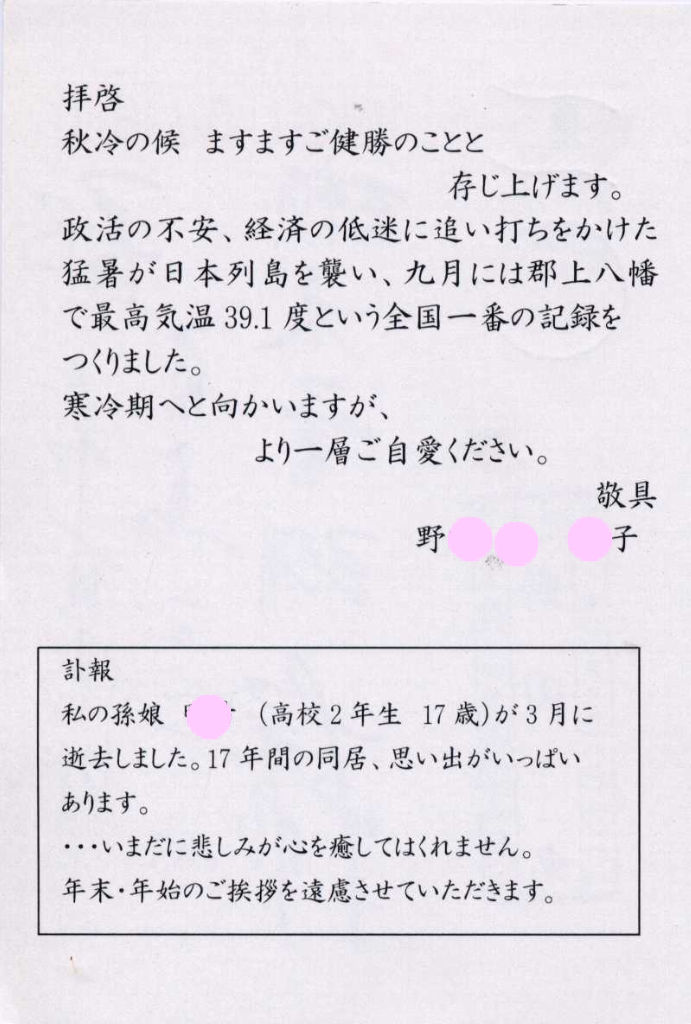 拝啓
秋冷の候　ますますご健勝のことと
存じ上げます。
政活の不安、経済の低迷に追い打ちをかけた
猛暑が日本列島を襲い、九月には郡上八幡
で最高気温 39.1 度という全国一番の記録を
つくりました。
寒冷期へと向かいますが、
より一層ご自愛ください。
敬具
野　子
訃報
私の孫娘　（高校 2 年生　17 歳）が 3 月に
逝去しました。17 年間の同居、思い出がいっぱい
あります。
・・・いまだに悲しみが心を癒してはくれません。
年末・年始のご挨拶を遠慮させていただきます。